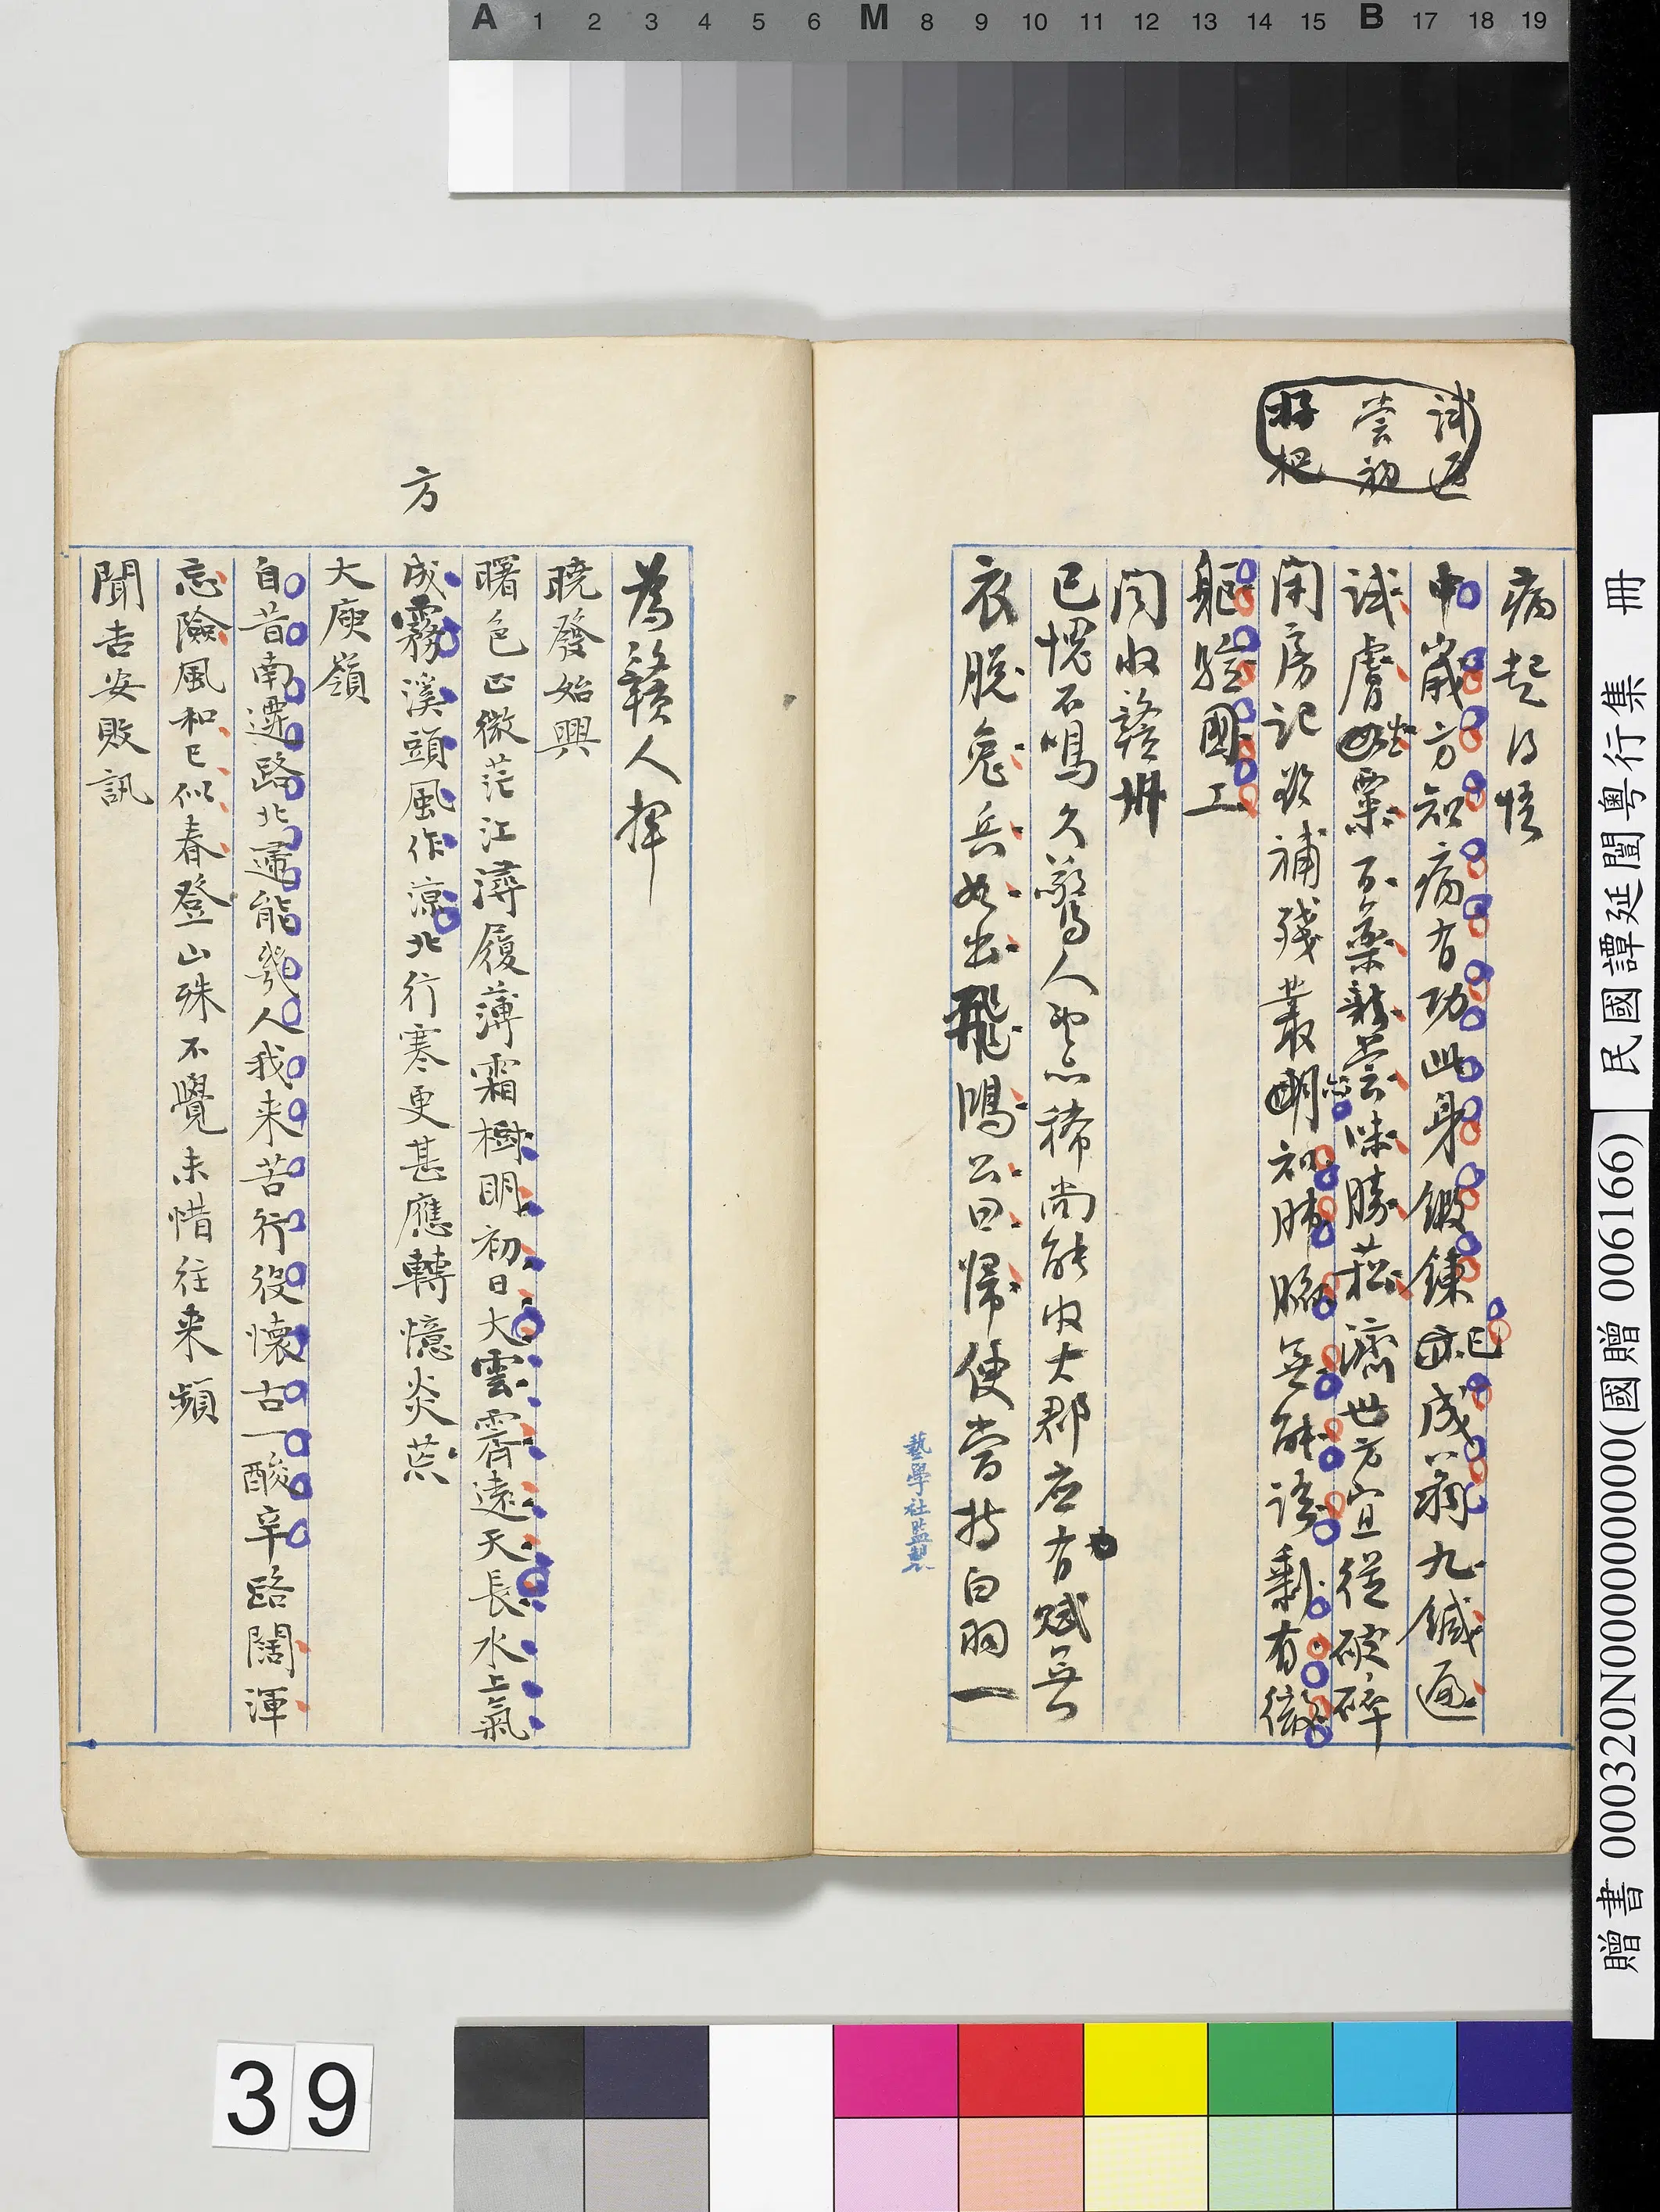 A 1 2 3 4 5 6 M 8 9 10 11 12 13 14 15 B 17 18 19
民國譚延闓粵行集 冊
贈書 000320N000000000(國贈 006166)
試遍
嘗初
病起 悟
中歲方知病有功此身鍛鍊已成翁九鍼遍
試膚粟百藥新嘗味勝菘濟世方宜從破碎
閉房記欲補殘叢初肺無能語剩有微
軀驗國工
聞收贛州
已愧石鳴久驚人稀尚能收大郡应有賦無
衣脫兔兵如出飛鴻公曰歸便當持白羽一
為贛人揮
藝學社監製
曉發始興
曙色正微茫江潯履薄霜樹明初日大雲霽遠天長水上氣
方
成霧溪頭風作涼北行寒更甚應轉憶炎荒
大庾嶺
自昔南遷路北還能幾人我来苦行役懷古一酸辛路闊渾
忘險風和已似春登山殊不覺未惜往来頻
聞吉安敗訊
39